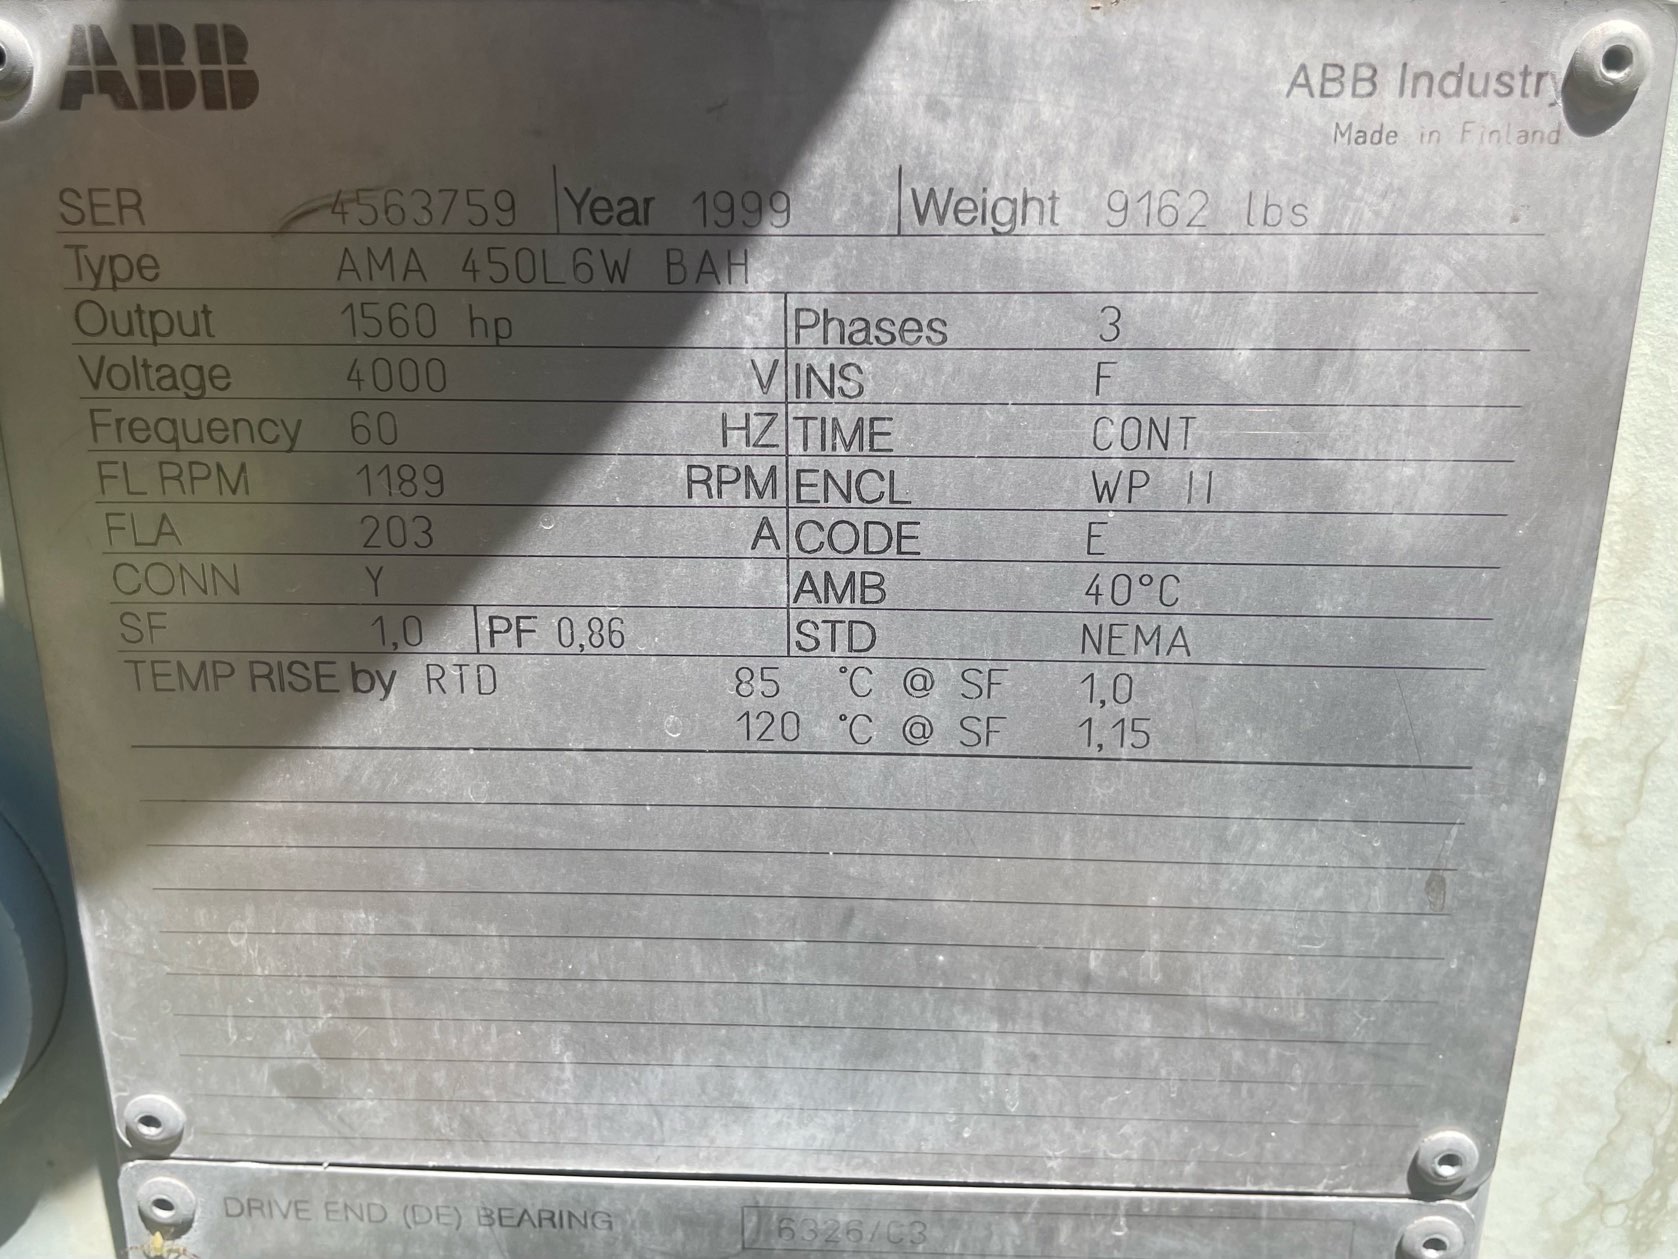 ABB
ABB Industry
Made in Finland
SER 4563759 Year 1999 Weight 9162 lbs
Type AMA 450L6W BAH
Output 1560 hp Phases 3
Voltage 4000 V INS F
Frequency 60 HZ TIME CONT
FL RPM 1189 RPM ENCL WP II
FLA 203 A CODE E
CONN Y AMB 40°C
SF 1,0 PF 0,86 STD NEMA
TEMP RISE by RTD 85 °C @ SF 1,0
120 °C @ SF 1,15
DRIVE END (DE) BEARING 6326/C3